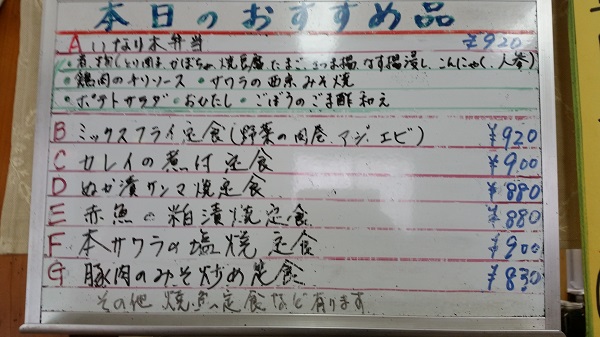 本日のおすすめ品
A いなり木弁当 ¥920
・煮もの(とり肉、かぼちゃ、焼豆腐、たまご、さつま揚、なす揚浸し、こんにゃく、人参)
・鶏肉のチリソース ・サワラの西京みそ焼
・ポテトサラダ ・おひたし ・ごぼうのごま酢和え
B ミックスフライ定食(野菜の肉巻、アジ、エビ) ¥920
C カレイの煮付定食 ¥900
D ぬか漬サンマ焼定食 ¥880
E 赤魚の粕漬焼定食 ¥880
F 本サワラの塩焼 定食 ¥900
G 豚肉のみそ炒め定食 ¥830
その他 焼魚定食など有ります